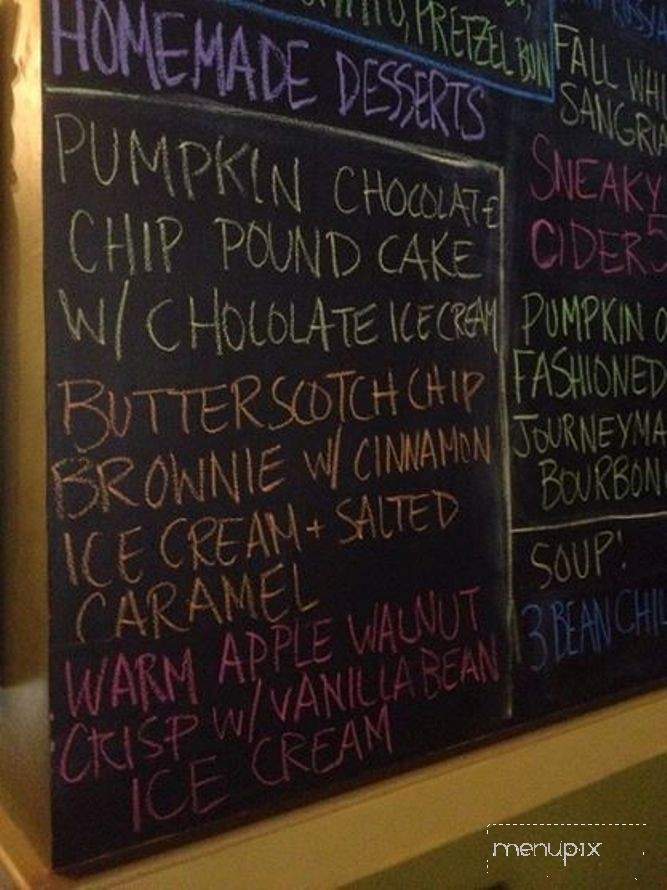 PRETZEL BUN
HOMEMADE DESSERTS
PUMPKIN CHOCOLATE
CHIP POUND CAKE
W/ CHOCOLATE ICE CREAM
BUTTERSCOTCH CHIP
BROWNIE W/ CINNAMON
ICE CREAM + SALTED
CARAMEL
WARM APPLE WALNUT
CRISP W/ VANILLA BEAN
ICE CREAM
FALL WHI
SANGRIA
SNEAKY
CIDER 5
PUMPKIN O
FASHIONED
JOURNEYMA
BOURBON
SOUP!
3 BEAN CHIL
menupix